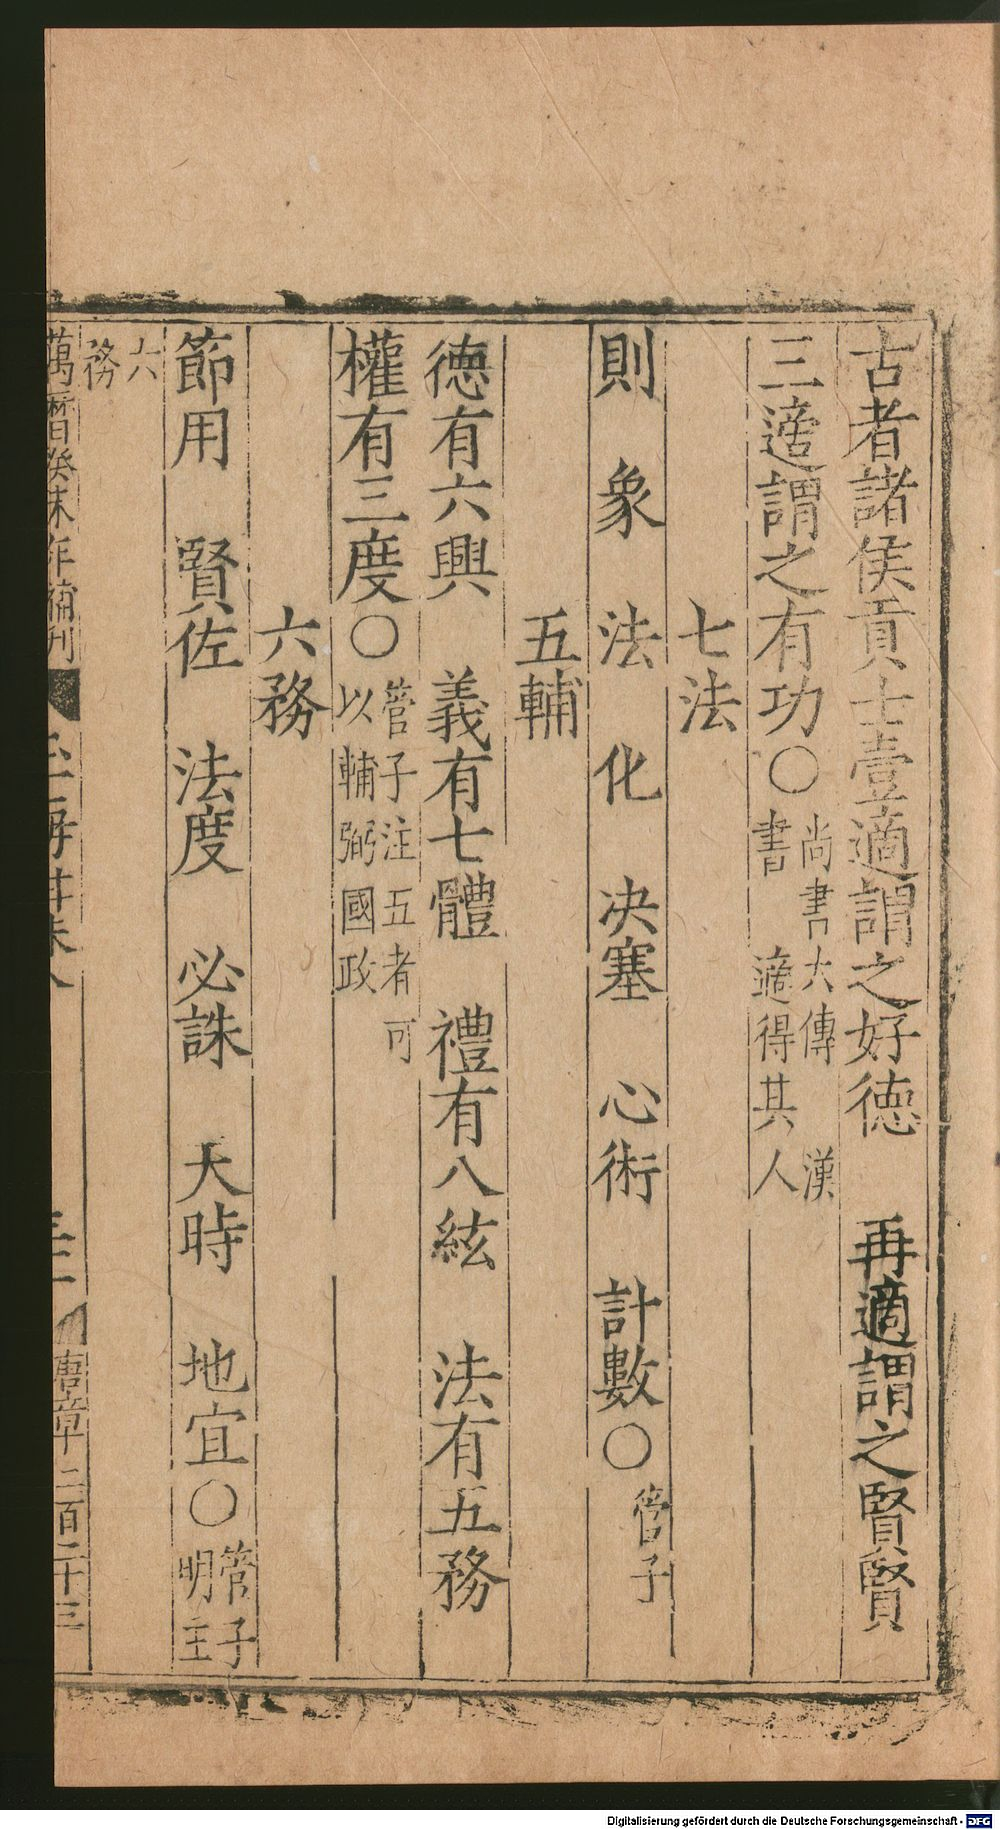 古者諸侯貢士壹適謂之好德 再適謂之賢賢
三適謂之有功〇尚書大傳 漢書 適得其人
七法
則 象 法 化 决塞 心術 計數〇管子
五輔
德有六興 義有七體 禮有八紘 法有五務
權有三度〇管子注五者可以輔弼國政
六務
節用 賢佐 法度 必誅 天時 地宜〇管子明主
六務
萬曆癸未年補刊
唐章二百二十三
Digitalisierung gefördert durch die Deutsche Forschungsgemeinschaft - DFG